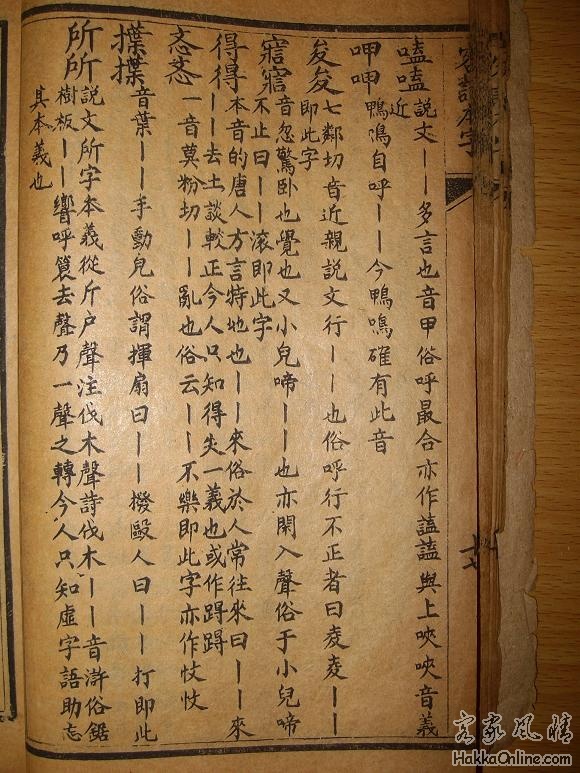 客話本字
嗑嗑
說文丨丨多言也音甲俗呼最合亦作譫譫與上唊唊音義
近
呷呷
鴨鳴自呼丨丨今鴨鳴確有此音
夋夋
七鄰切音近親說文行丨丨也俗呼行不正者曰夌夌丨丨
即此字
寣寣
音忽驚卧也覺也又小兒啼丨丨也亦開入聲俗于小兒啼
不止曰丨丨滚即此字
得得
本音的唐人方言特地也丨丨來俗於人常往來曰丨丨來
丨丨去土談較正今人只知得失一義也或作踍踍
忞忞
一音莫粉切丨丨亂也俗云丨丨不樂即此字亦作忟忟
擛擛
音葉丨丨手動皃俗謂揮扇曰丨丨撥毆人曰丨丨打即此
所所
說文所字本義從斤户聲注伐木聲詩伐木丨丨音滸俗鋸
樹板丨丨響呼簋去聲乃一聲之轉今人只知虚字語助忘
其本義也
客家風情
HakkaOnline.com